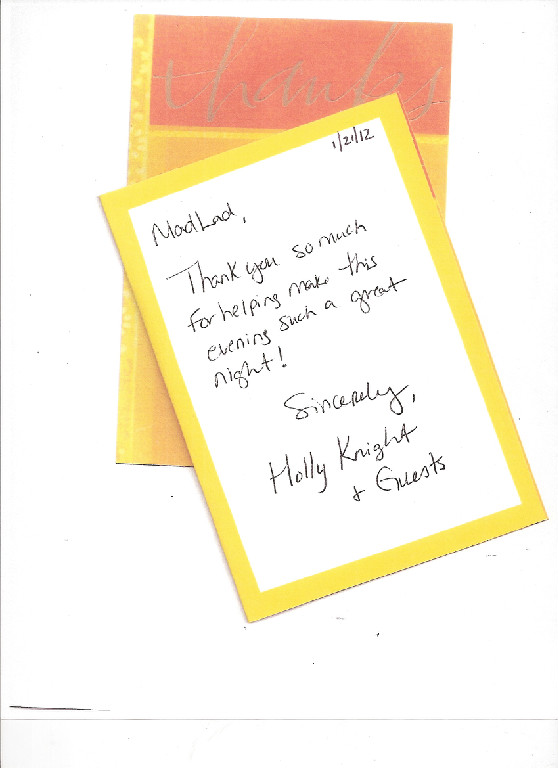 thanks
1/21/12
MadLad,
Thank you so much
for helping make this
evening such a great
night!
Sincerely,
Holly Knight
+ Guests